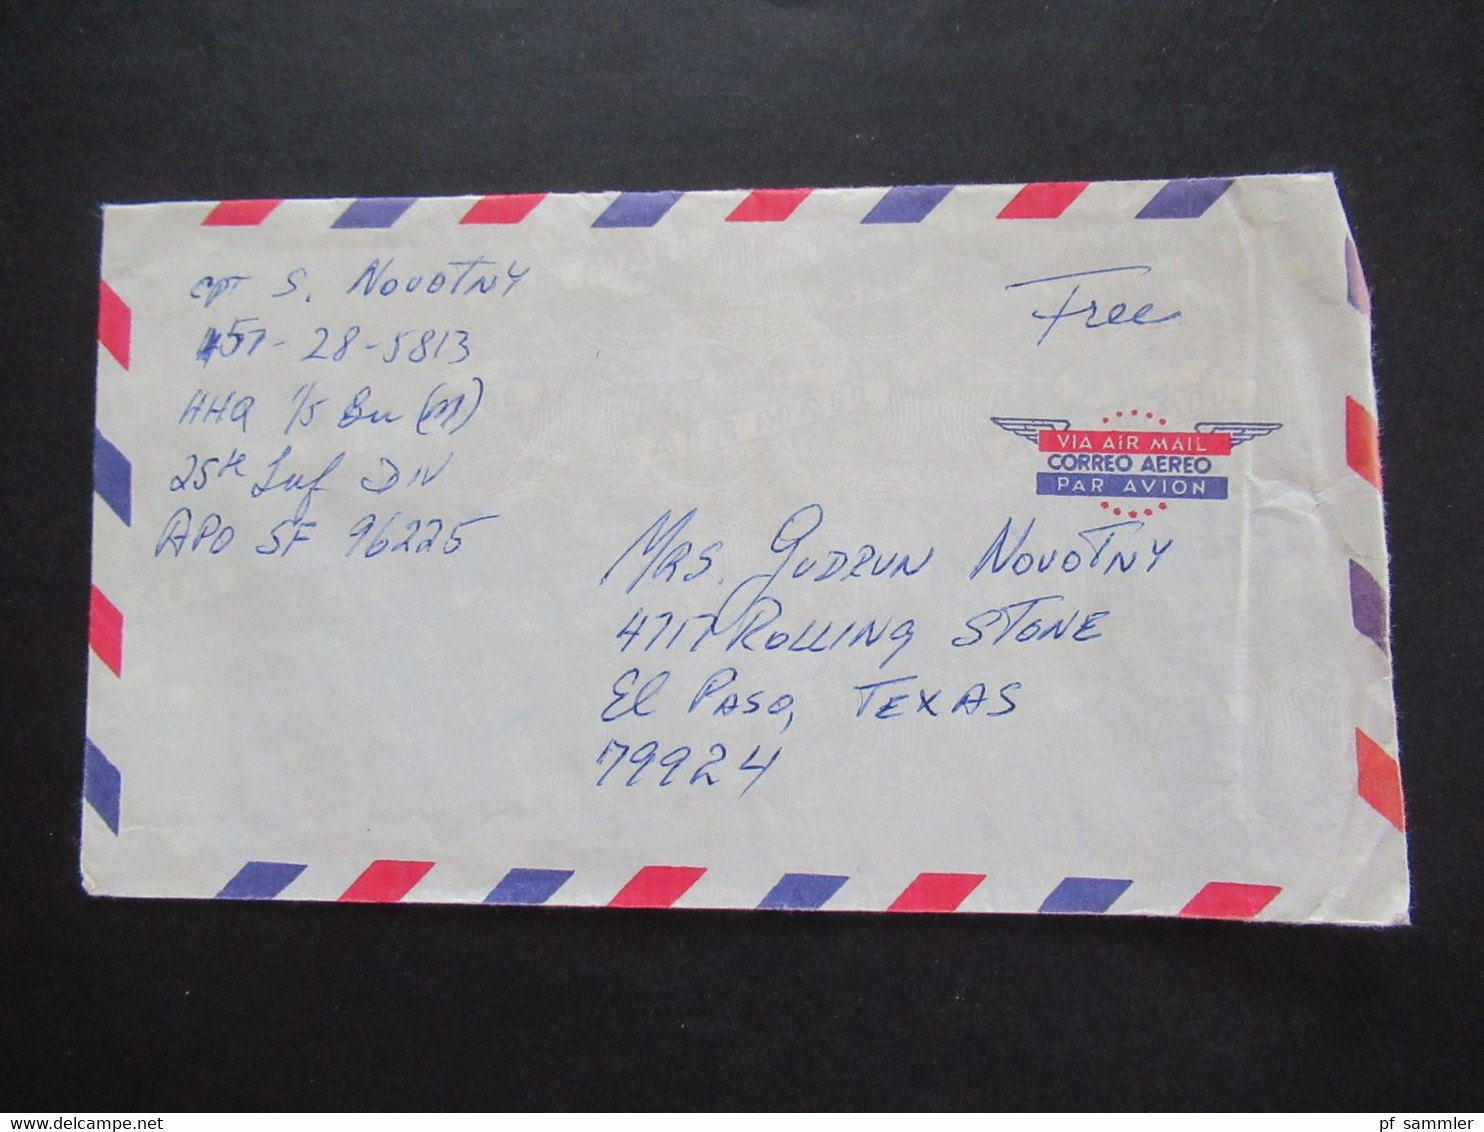 CPT S. NOVOTNY
28-5813
HHQ 1/5 Bn (M)
25th Inf DIV
APO SF 96225
Free
VIA AIR MAIL
CORREO AEREO
PAR AVION
MRS. GUDRUN NOVOTNY
4717 ROLLING STONE
El PASO, TEXAS
79924
pf_sammler